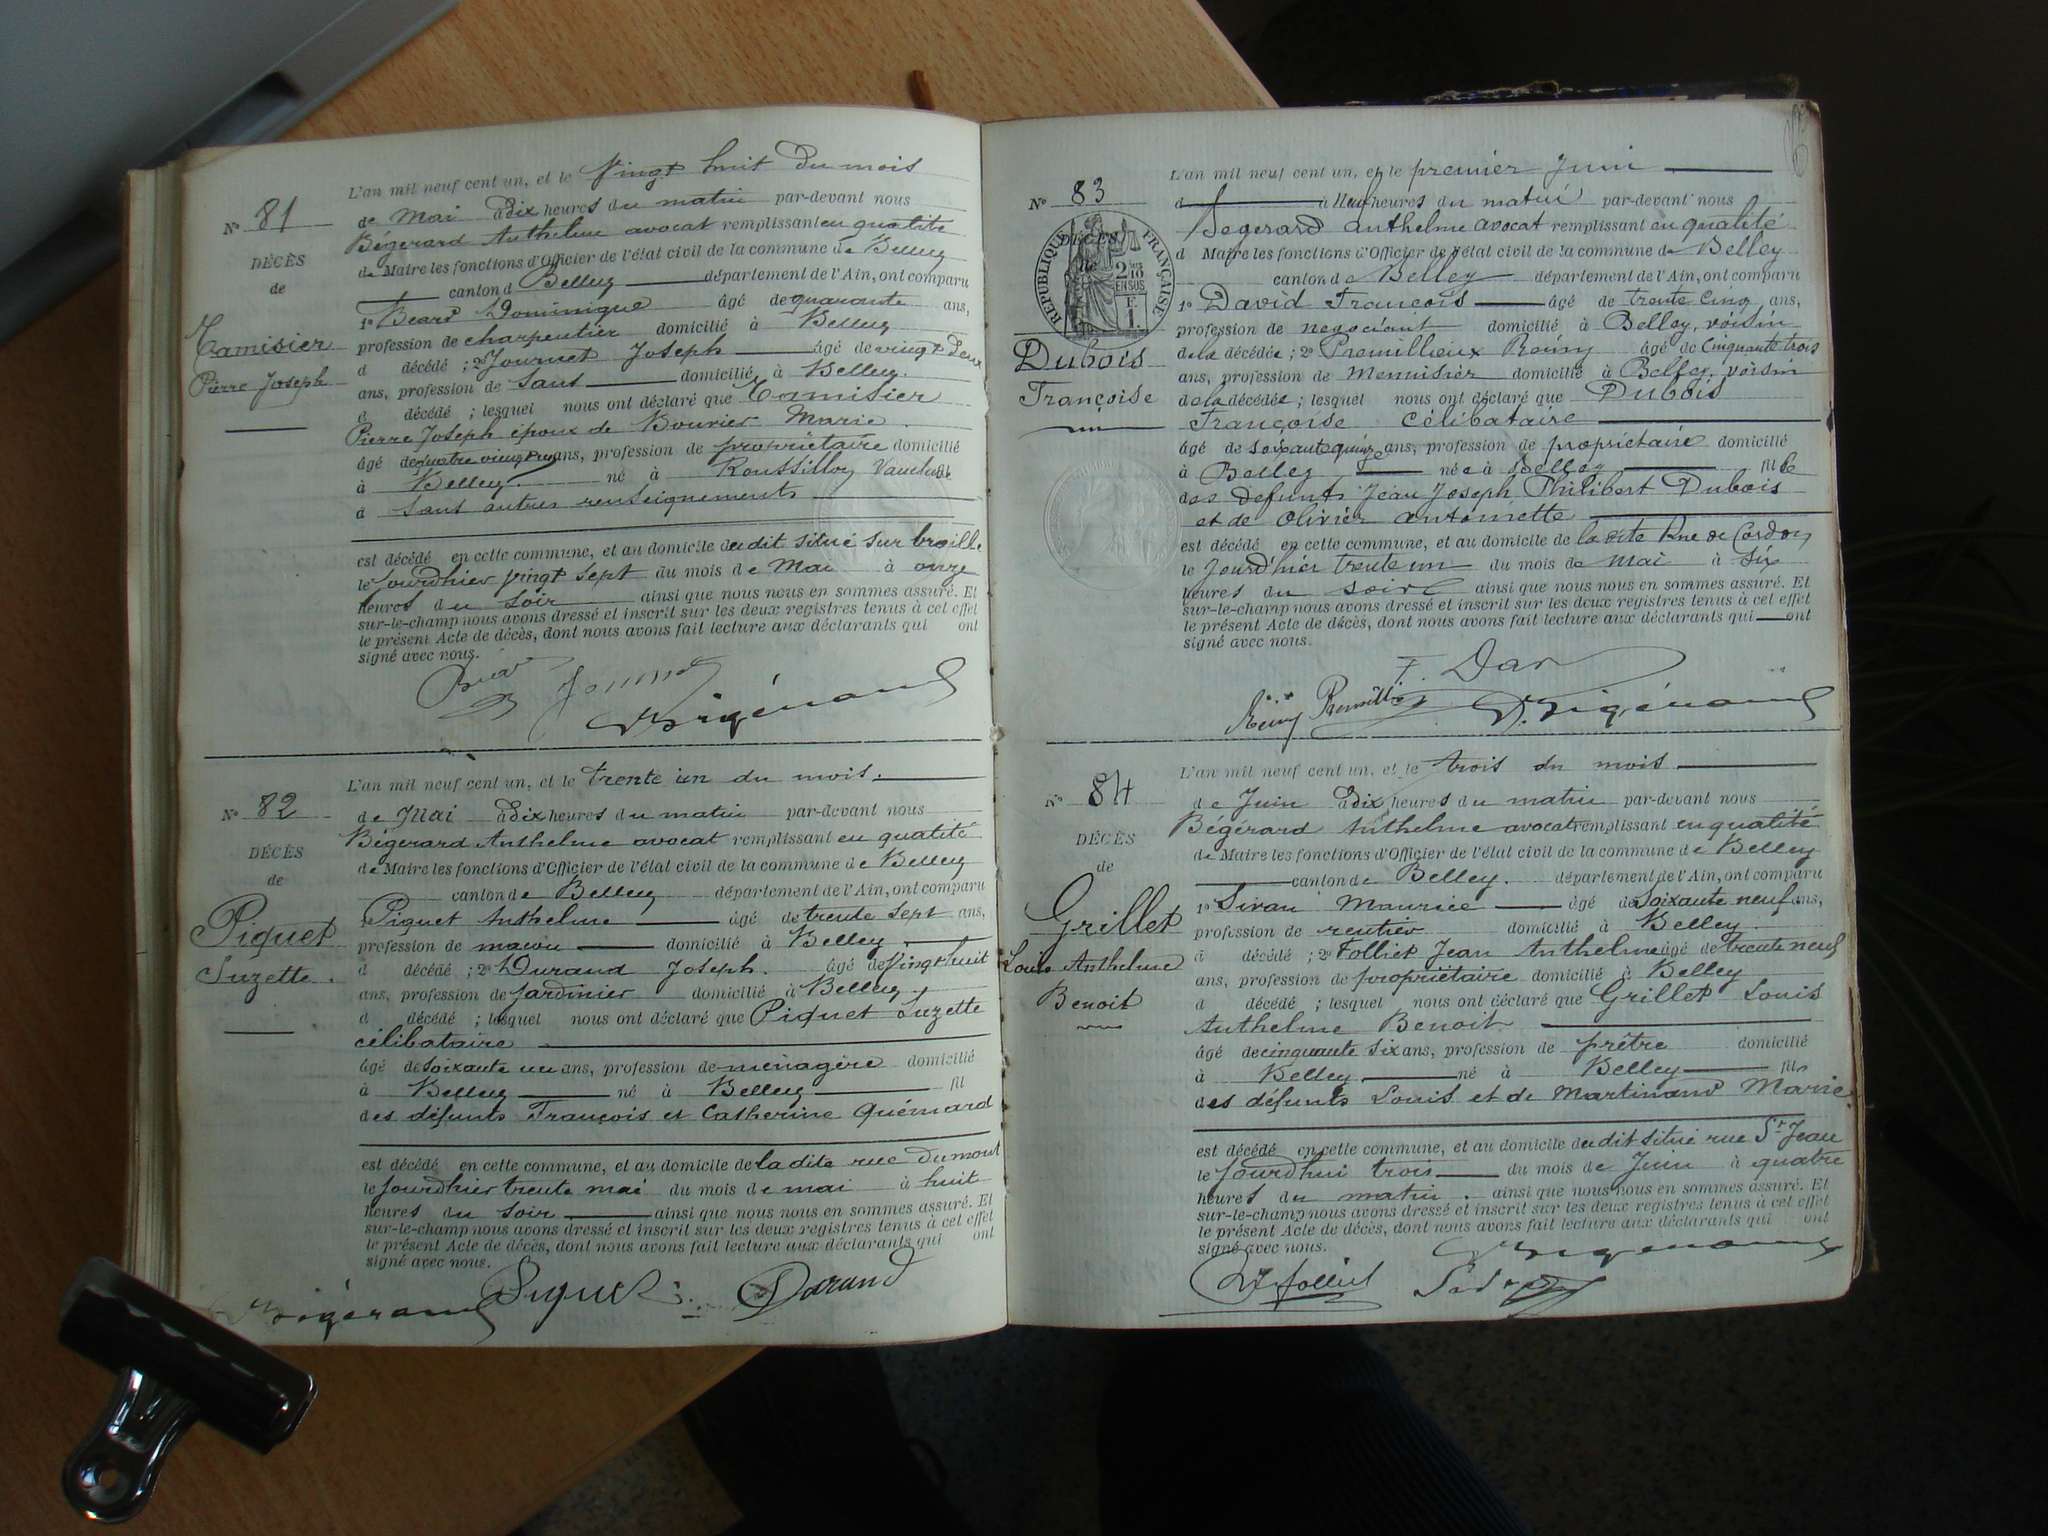 L'an mil neuf cent un, et le Vingt huit Du mois
N° 81
de Mai à Dix heures du matin par-devant nous
Bégerard Anthelme avocat remplissant en qualité
de Maire les fonctions d'Officier de l'état civil de la commune de Belley
canton d Belley département de l'Ain, ont comparu
DÉCÈS
de
Tamisier
Pierre Joseph
1° Béard Dominique âgé de quarante ans,
profession de charpentier domicilié à Belley
d décédé ; 2° Journet Joseph âgé de vingt Deux
ans, profession de Sans domicilié à Belley.
d décédé ; lesquel nous ont déclaré que Tamisier
Pierre Joseph époux de Bouvier Marie
âgé de quatre vingt ans, profession de propriétaire domicilié
à Belley né à Roussillon Vaucluse
d sans autres renseignements
est décédé en cette commune, et au domicile dudit situé sur
le Jourdhier vingt sept du mois de Mai à onze
heures du soir ainsi que nous nous en sommes assuré. Et
sur-le-champ nous avons dressé et inscrit sur les deux registres tenus à cet effet
le présent Acte de décès, dont nous avons fait lecture aux déclarants qui ont
signé avec nous.
L'an mil neuf cent un, et le trente un du mois.
N° 82
de Mai à Dix heures du matin par-devant nous
Bégerard Anthelme avocat remplissant en qualité
de Maire les fonctions d'Officier de l'état civil de la commune de Belley
canton de Belley département de l'Ain, ont comparu
DÉCÈS
de
Piquet
Suzette.
1° Piquet Anthelme âgé de trente sept ans,
profession de maçon domicilié à Belley
d décédé ; 2° Durand Joseph. âgé de Vingt huit
ans, profession de jardinier domicilié à Belley
d décédé ; lesquel nous ont déclaré que Piquet Suzette
célibataire
âgé de soixante un ans, profession de ménagère domicilié
à Belley né à Belley fil
des défunts François et Catherine Guémard
est décédé en cette commune, et au domicile de la dite rue Dumont
le Jourdhier trente mai du mois de mai à huit
heures du soir ainsi que nous nous en sommes assuré. Et
sur-le-champ nous avons dressé et inscrit sur les deux registres tenus à cet effet
le présent Acte de décès, dont nous avons fait lecture aux déclarants qui ont
signé avec nous.
Piquet Durand
L'an mil neuf cent un, et le premier Juin
N° 83
d à Neuf heures du matin par-devant nous
Begerard Anthelme avocat remplissant en qualité
d Maire les fonctions d'Officier de l'état civil de la commune de Belley
canton de Belley département de l'Ain, ont comparu
DÉCÈS
de
RÉPUBLIQUE FRANÇAISE
2/10 EN SUS
Dubois
Françoise
1° David François âgé de trente cinq ans,
profession de negociant domicilié à Belley, voisin
de la décédée ; 2° Premillieux Rémy âgé de Cinquante trois
ans, profession de Menuisier domicilié à Belley, voisin
de la décédée ; lesquel nous ont déclaré que Dubois
Françoise Célibataire
âgé de soixante quinze ans, profession de propriétaire domicilié
à Belley née à Belley fille
des defunts Jean Joseph Philibert Dubois
et de Olivier Antoinette
est décédé en cette commune, et au domicile de la dite Rue de Cordon
le Jourd'hier trente un du mois de mai à six
heures du soir ainsi que nous nous en sommes assuré. Et
sur-le-champ nous avons dressé et inscrit sur les deux registres tenus à cet effet
le présent Acte de décès, dont nous avons fait lecture aux déclarants qui ont
signé avec nous.
L'an mil neuf cent un, et le trois du mois
N° 84
de Juin à Dix heures du matin par-devant nous
Bégérard Anthelme avocat remplissant en qualité
de Maire les fonctions d'Officier de l'état civil de la commune de Belley
canton de Belley. département de l'Ain, ont comparu
DÉCÈS
de
Grillet
Louis Anthelme
Benoit
1° Sivan Maurice âgé de Soixante neuf ans,
profession de rentier domicilié à Belley
d décédé ; 2° Folliet Jean Anthelme âgé de trente neuf
ans, profession de propriétaire domicilié à Belley
d décédé ; lesquel nous ont déclaré que Grillet Louis
Anthelme Benoit
âgé de cinquante six ans, profession de prêtre domicilié
à Belley né à Belley fils
des défunts Louis et de Martinand Marie
est décédé en cette commune, et au domicile dudit situé rue St Jean
le Jourdhui trois du mois de Juin à quatre
heures du matin. ainsi que nous nous en sommes assuré. Et
sur-le-champ nous avons dressé et inscrit sur les deux registres tenus à cet effet
le présent Acte de décès, dont nous avons fait lecture aux déclarants qui ont
signé avec nous.